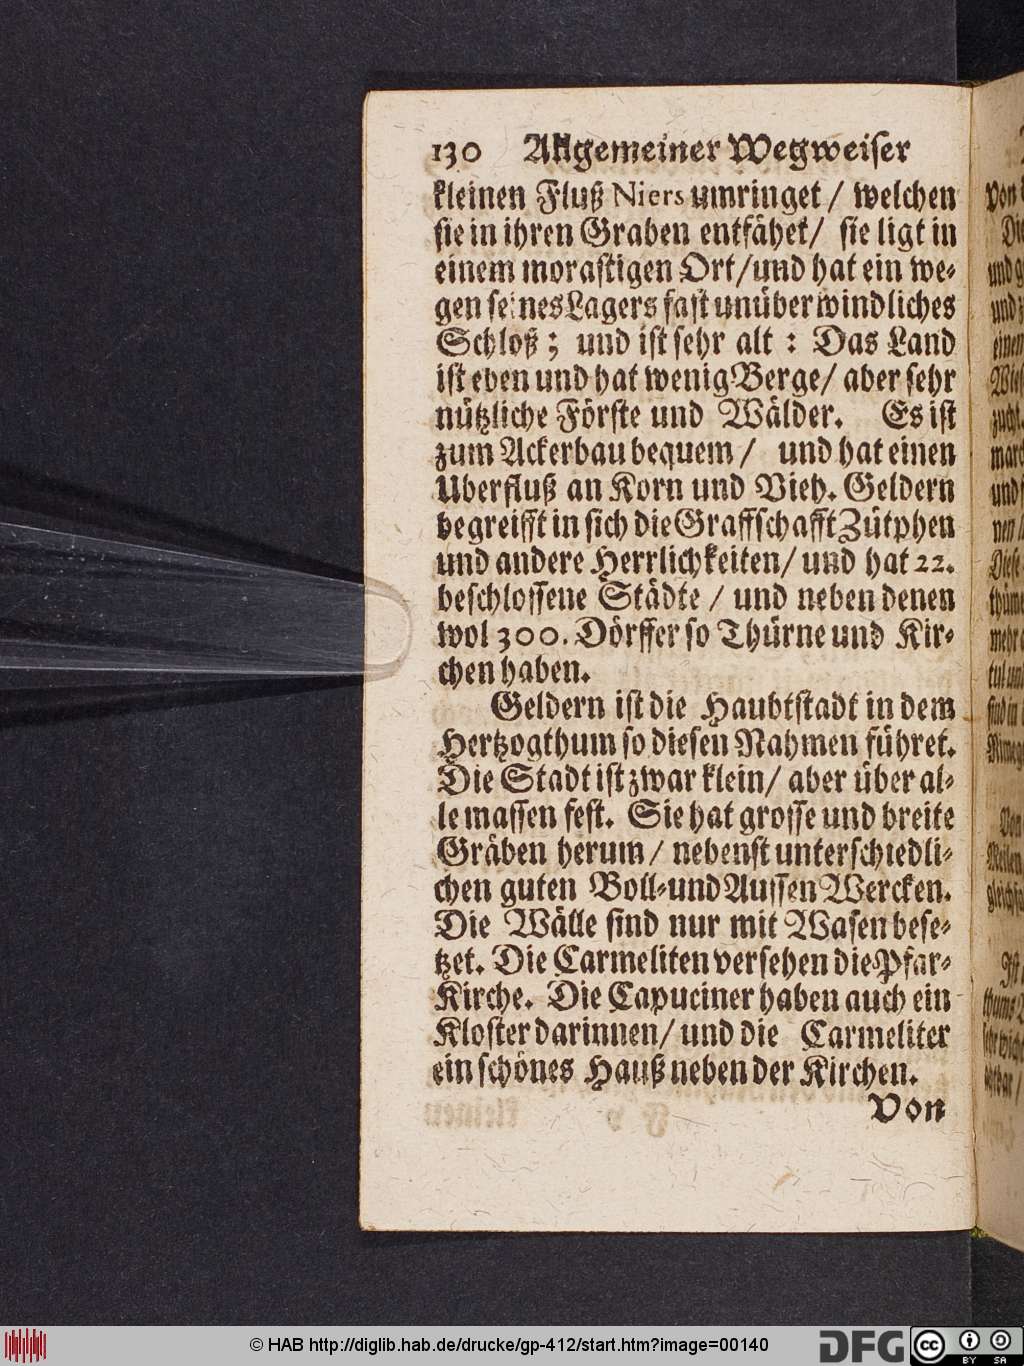 130 Allgemeiner Wegweiser
kleinen Fluß Niers umringet / welchen
sie in ihren Graben entfähet / sie ligt in
einem morastigen Ort / und hat ein we-
gen seines Lagers fast unüberwindliches
Schloß ; und ist sehr alt : Das Land
ist eben und hat wenig Berge / aber sehr
nützliche Förste und Wälder. Es ist
zum Ackerbau bequem / und hat einen
Uberfluß an Korn und Vieh. Geldern
begreifft in sich die Graffschafft Zütphen
und andere Herrlichkeiten / und hat 22.
beschlossene Städte / und neben denen
wol 300. Dörffer so Thürne und Kir-
chen haben.
Geldern ist die Haubtstadt in dem
Hertzogthum so diesen Nahmen führet.
Die Stadt ist zwar klein / aber über al-
le massen fest. Sie hat grosse und breite
Gräben herum / nebenst unterschiedli-
chen guten Boll- und Aussen Wercken.
Die Wälle sind nur mit Wasen bese-
tzet. Die Carmeliten versehen die Pfar-
Kirche. Die Capuciner haben auch ein
Kloster darinnen / und die Carmeliter
ein schönes Hauß neben der Kirchen.
Von
© HAB http://diglib.hab.de/drucke/gp-412/start.htm?image=00140
DFG
cc BY SA